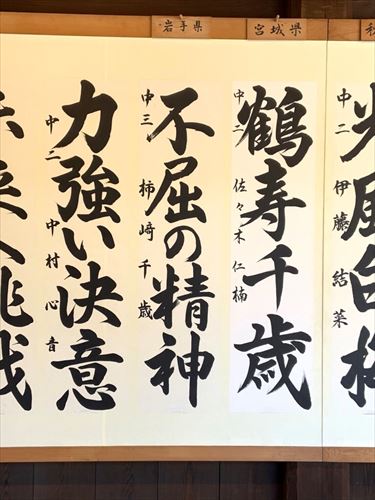 岩手県
宮城県
光風台
中二 伊藤結菜
鶴寿千歳
中二 佐々木仁楠
不屈の精神
中三 柿崎千歳
力強い決意
中二 中村心音
未来へ挑戦